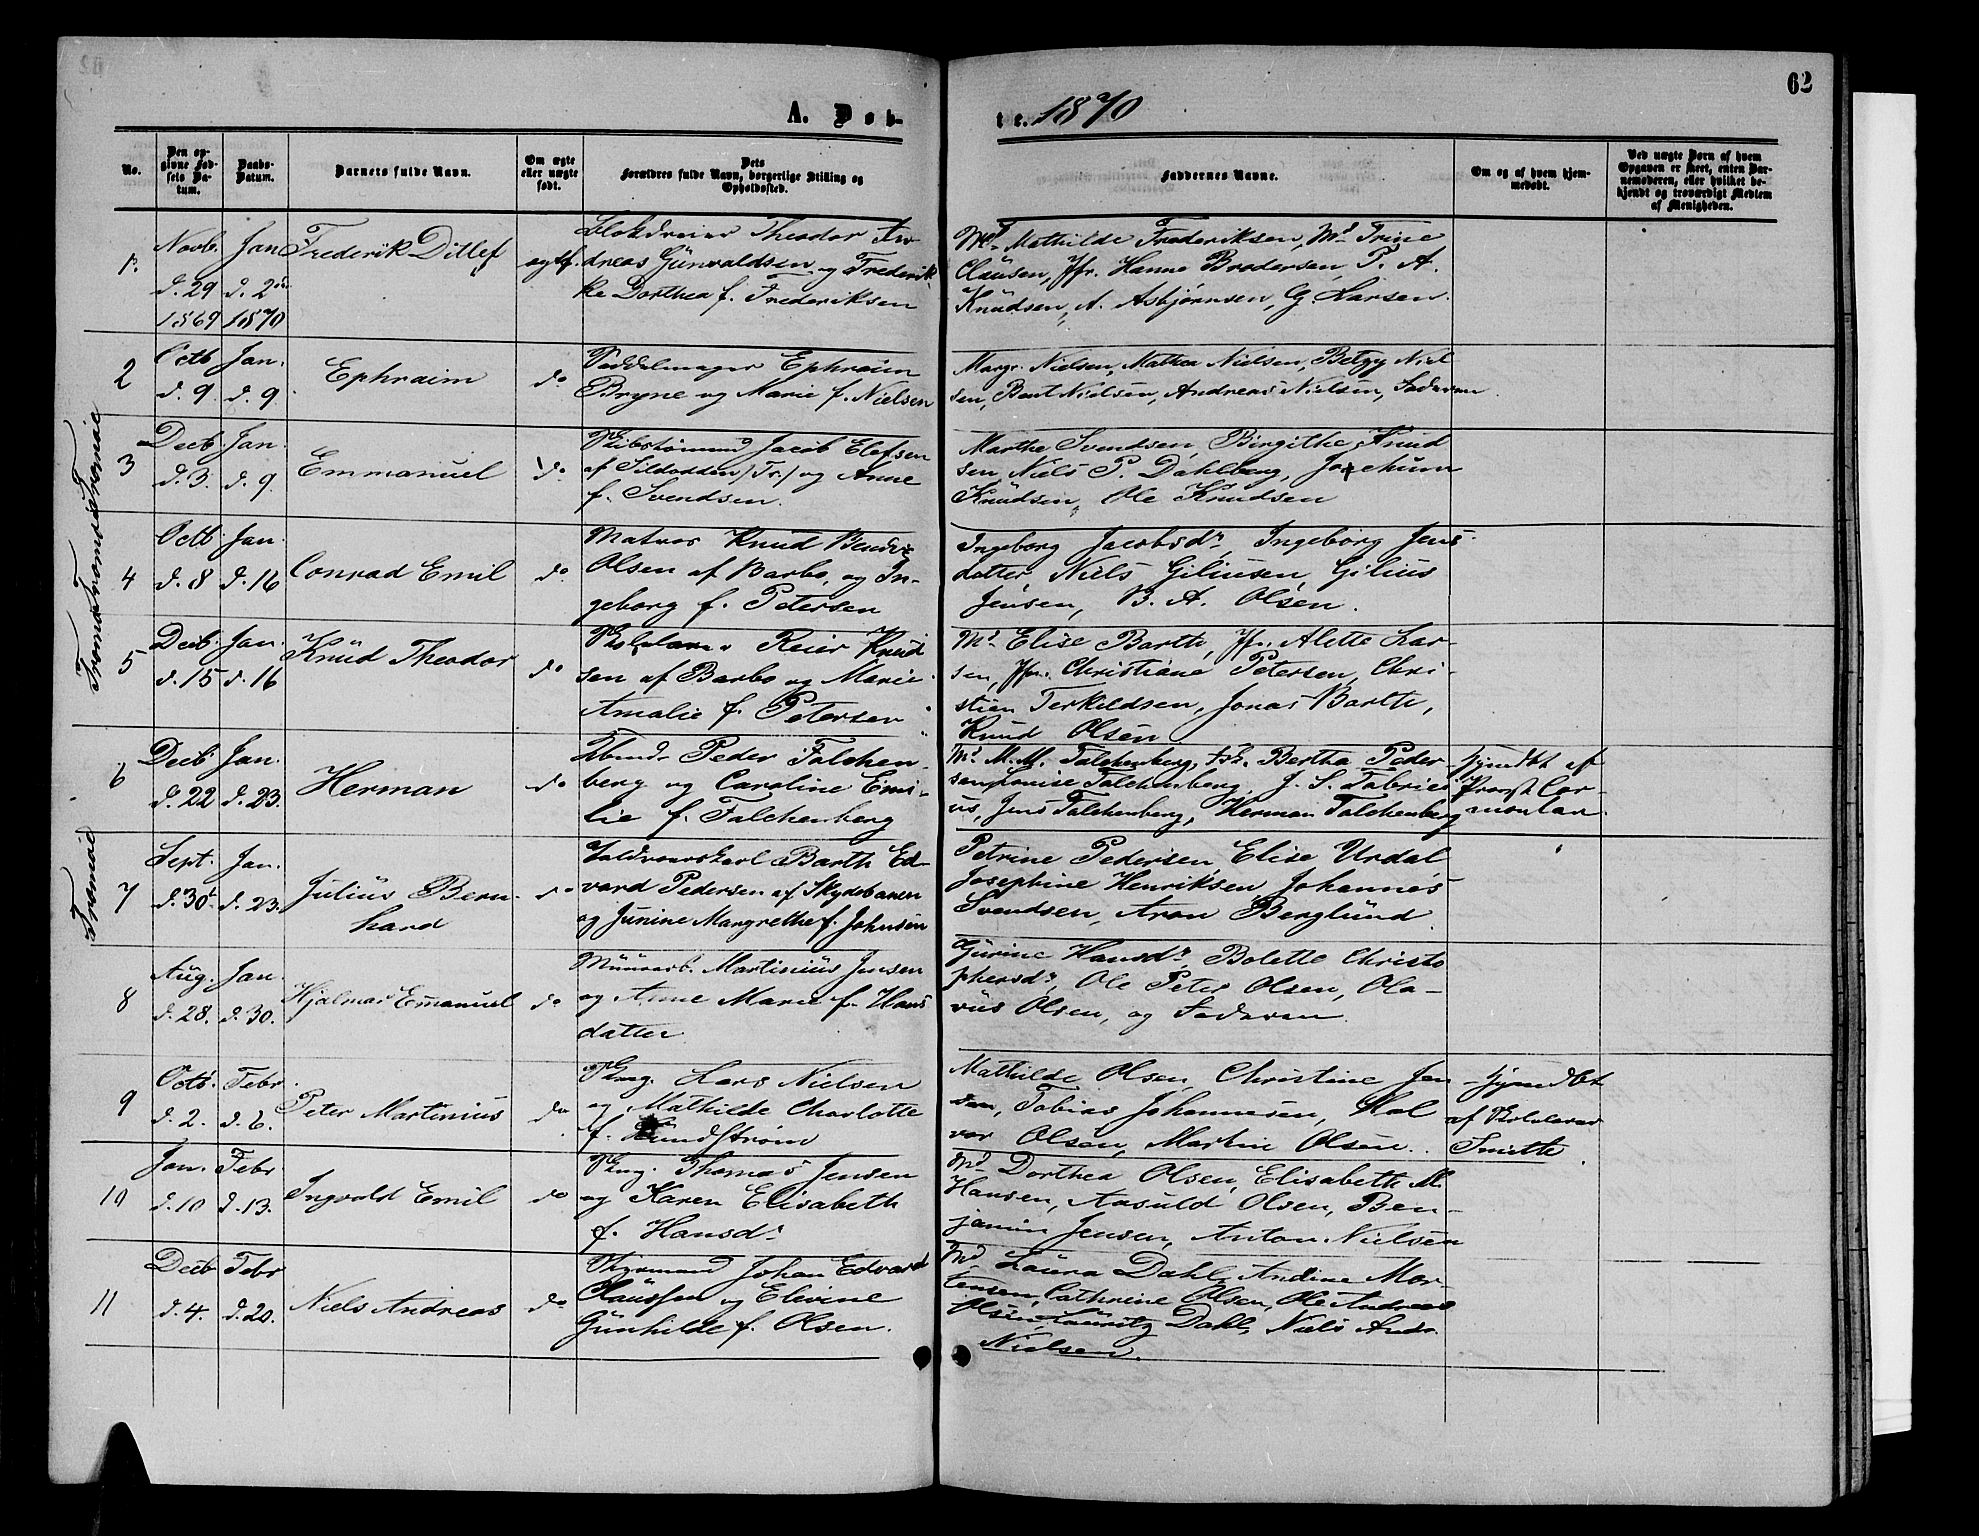 62
A. Døb-
te. 1870
No.
Den op-
givne Fød-
sels Da-
tum.
Daabs-
Datum.
Barnets fulde Navn.
Om ægte
eller uægte
født.
Dets
Forældres fulde Navn, borgerlige Stilling og
Opholdssted.
Faddernes Navne.
Om og af hvem hjem-
medøbt.
Ved uægte Børn af hvem
Opgaven er skeet, enten Bar-
nemoderen, eller hvilket be-
kjendt og troværdigt Medlem
af Menigheden.
1.
Novb.
d. 29
1869
Jan
d. 2
1870
Frederik Ditlef
ægtf.
Blokdreier Theodor An-
dreas Günvaldsen og Frederik-
ke Dorthea f. Frederiksen
Md. Mathilde Frederiksen, Md. Trine
Claüsen, Jfr. Hanne Brodersen, P. A.
Knüdsen, A. Asbjørnsen, G. Larsen.
2
Octb
d. 9.
Jan.
d. 9.
Ephraim
do
Ephraim
Bryne og Marie f. Nielsen
Margr. Nielsen, Mathea Nielsen, Betzy Niel
sen, Bent Nielsen, Andreas Nielsen, Faderen.
3
Decb
d. 3.
Jan.
d. 9.
Emmanuel
do
Skibstømmd Jacob Elefsen
af Sildodden (Tr.) og Anne
f. Svendsen.
Marthe Svendsen, Birgithe Knud
sen, Niels P. Dahlberg, Jochum
Knüdsen, Ole Knudsen
4
Octb
d. 8
Jan.
d. 16
Conrad Emil
do
Matros Knud
Olsen af Barbo, og In-
geborg f. Petersen
Ingeborg Jacobsdr, Ingeborg Jens-
datter, Niels Giliusen, Gilius
Jensen, B. A. Olsen.
5
Decb.
d. 15
Jan.
d. 16
Knüd Theodor
do
Skolelærer Reier Knud
sen af Barbo og Marie
Amalie f. Petersen
Md. Elise Barth, Jfr. Alette Lar-
sen, Jfr. Christiane Petersen, Chri-
stian Terkildsen, Jonas Barth,
Knud Olsen
6
Decb
d. 22
Jan.
d. 23.
Herman
do
Peder Falchen-
berg og Caroline Emi-
lie f. Falchenberg
Md. M. M. Falchenberg, Bertha Peder-
sen, Louise Falchenberg, J. S. Fabrici-
us, Jens Falchenberg, Herman Falchenberg
hjemdbt af
Provst Cor-
montan.
7
Sept.
d. 30
Jan.
d. 23.
Julius Bern-
hard
do
Barth Ed-
vard Pedersen af Skydebanen
og Junine Margrethe f. Johnsen
Petrine Pedersen, Elise Urdal
Josephine Henriksen, Johannes
Svendsen, Aron Berglünd.
8
Aug.
d. 28.
Jan.
d. 30.
Hjalmar Emanuel
do
Müürarb. Martinius Jensen
og Anne Marie f. Hans
datter
Gürine Hansdr, Bolette Christo
phersdr, Ole Peter Olsen, Ola-
vüs Olsen, og Faderen.
9
Octb.
d. 2.
Febr.
d. 6.
Peter Martinius
do
Lars Nielsen
og Mathilde Charlotte
f. Lundstrøm
Mathilde Olsen, Christine Jen
sen, Tobias Johannesen, Hal
vor Olsen, Martin Olsen.
hjemdbt
af Skolelærer
Smith.
10
Jan.
d. 10
Febr
d. 13.
Ingvald Emil
do
Thomas Jensen
og Karen Elisabeth
f. Hansdr
Md. Dorthea Olsen, Elisabeth M.
Hansen, Aasuld Olsen, Ben-
jamin Jensen, Anton Nielsen
11
Decb
d. 4.
Febr
d. 20.
Niels Andreas
do
Styrmand Johan Edvard
Claüssen og Elevine
Günhilde f. Olsen.
Md. Laura Dahl, Andine Mor-
tensen, Cathrine Olsen, Ole Andreas
Olsen, Lauritz Dahl, Niels Andr.
Nielsen.
Tromøe
Tromøe
Tromøe
Tromøe